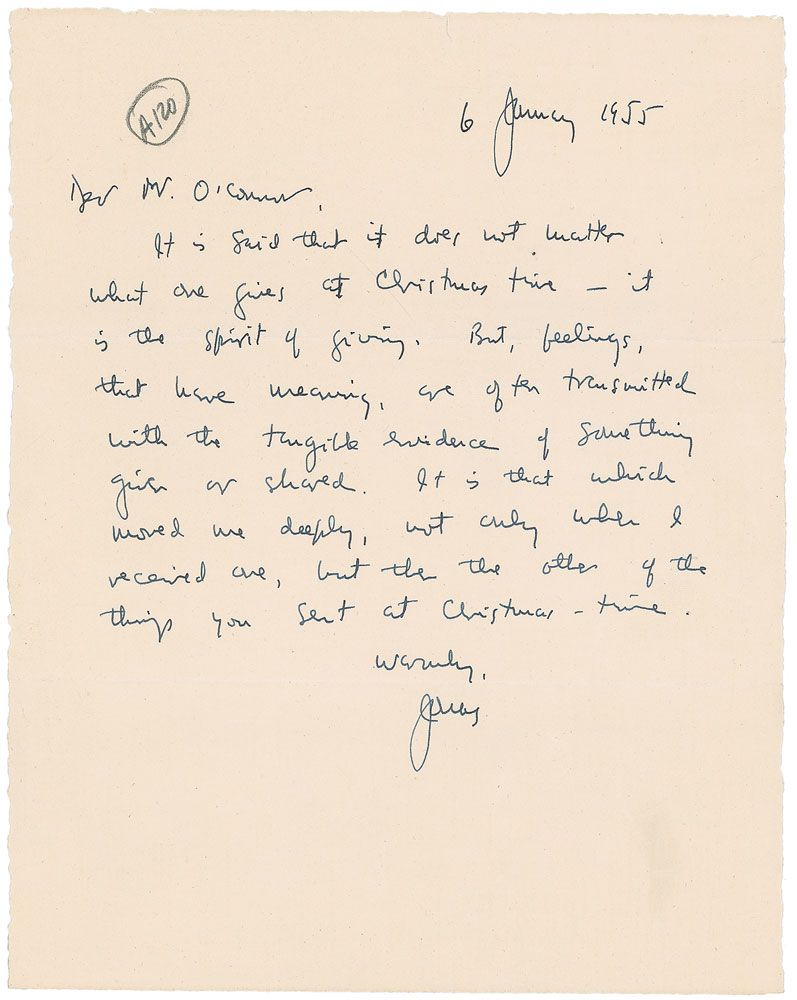 A120
6 January 1955
Dear Mr. O'Connor,
It is said that it does not matter
what one gives at Christmas time — it
is the spirit of giving. But, feelings,
that have meaning, are often transmitted
with the tangible evidence of something
given or shared. It is that which
moved me deeply, not only when I
received one, but then the other of the
things you sent at Christmas-time.
Warmly,
Jonas